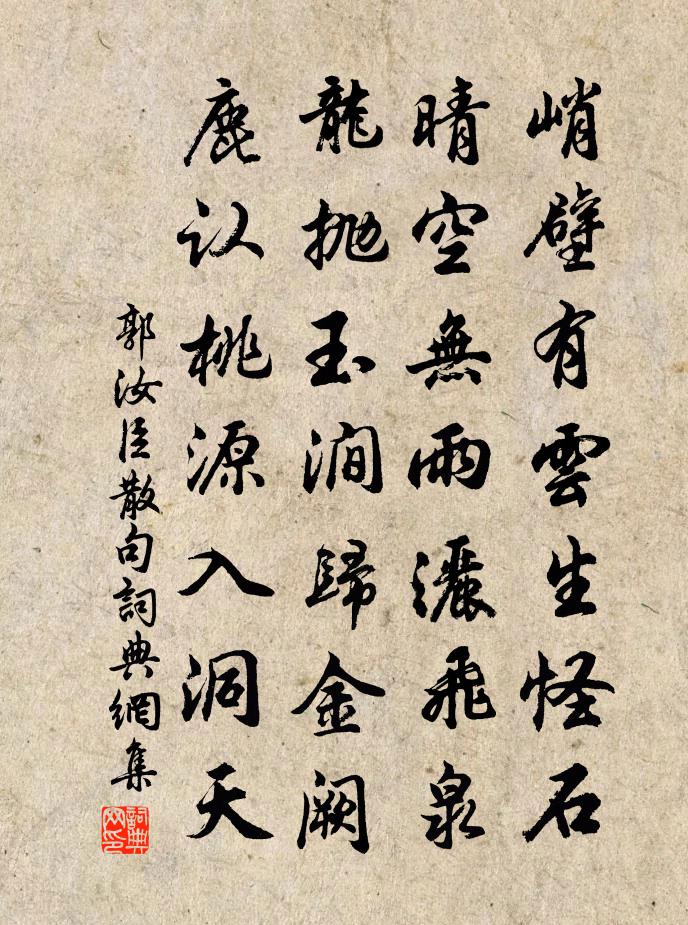 峭壁有雲生怪石
晴空無雨灑飛泉
龍抛玉澗歸金闕
鹿认桃源入洞天
郭汝臣散句詞典網集
詞典网印